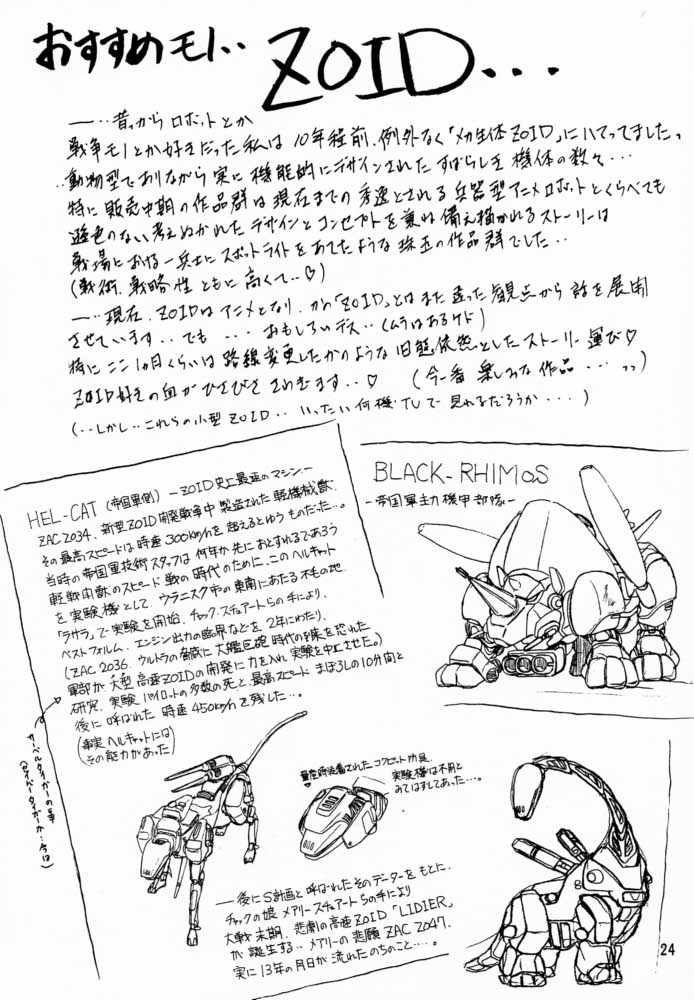 おすすめモノ‥ ZOID...
―‥昔っから ロボットとか
戦争モノとか好きだった私は 10年程前、例外なく「メカ生体ZOID」にハマってましたっ
‥動物型でありながら実に機能的にデザインされた すばらしき 機体の数々…
特に 販売中期の作品群は現在までの秀逸とされる兵器型アニメロボットとくらべても
遜色のない考えぬかれた デザインとコンセプトを兼ね備え描かれるストーリーは
戦場における一兵士にスポットライトをあてたような 珠玉の作品群でした‥
(戦術、戦略性 ともに高くて‥♡)
―‥現在、ZOIDはアニメとなり、かの「ZOID」とはまた違った観点から話を展開
させています‥でも …おもしろいデス‥(ムラはあるケド)
特にここ1ヵ月くらいは路線変更したかのような旧態依然としたストーリー運び♡
ZOID好きの血がひさびさ さわぎます‥♡ (今一番 楽しみな作品…っっ)
(‥しかし‥これらの小型ZOID‥いったい何機TVで見れるだろうか…)
HEL-CAT (帝国軍側) ―ZOID史上最速のマシン―
ZAC2034、新型ZOID開発戦争中 製造された軽機械獣、
その最高スピードは時速300km/hを超えるとゆうものだった…。
当時の帝国軍技術スタッフは何年か先におとずれるであろう
軽戦闘獣のスピード戦の時代のために、このヘルキャット
を実験機として、ウラニスク市の東南にあたる不毛の地、
「ラサラ」で実験を開始、チャック・スチュアートらの手により、
ベストフォルム、エンジン出力の臨界などを2年にわたり、
(ZAC2036、ウルトラの脅威に大艦巨砲時代の到来を恐れた
軍部が、大型高速ZOIDの開発に力を入れ 実験を中止させた。)
研究、実験パイロットの多数の死と、最高スピード まぼろしの10分間と
後に呼ばれた 時速450km/hを残した…。
(事実ヘルキャットには
その能力があった)
サーベルタイガーの事
(セイバータイガーか…今は)
BLACK-RHIMOS
―帝国軍主力機甲部隊―
量産時装着されたコクピット防具、
実験機は不用と
みてはずしてあった…。
―後にS計画と呼ばれたそのデーターをもとに、
チャックの娘 メアリー・スチュアートらの手により
大戦末期、悲劇の高速ZOID「LIDIER」
が誕生する‥メアリーの悲願ZAC2047、
実に13年の月日が流れたのちのこと…。
24